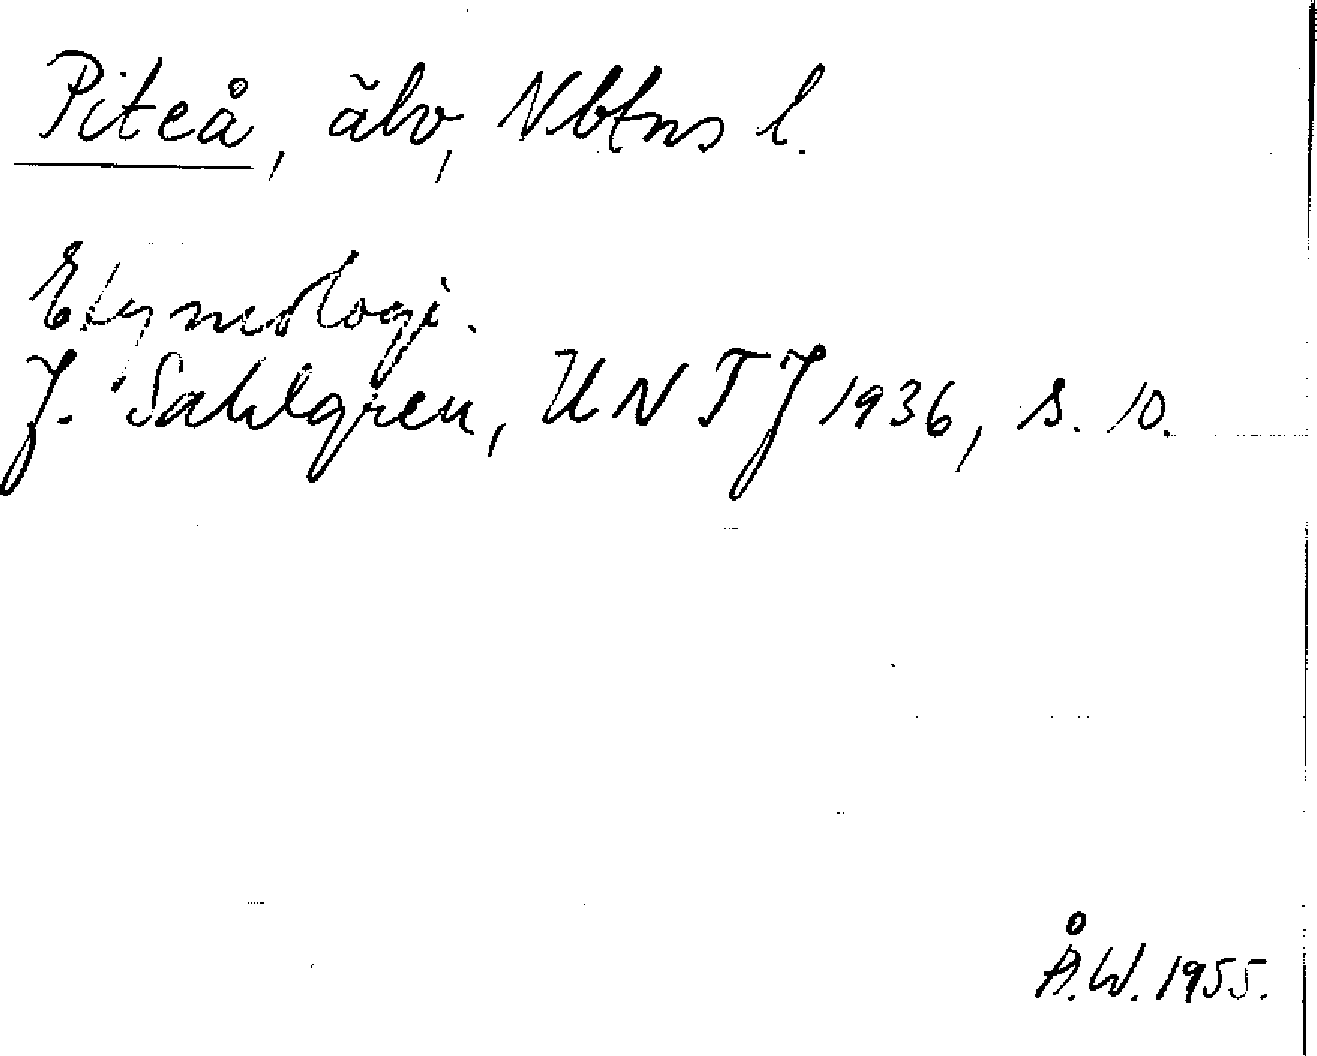 Piteå, älv, Nbtns l.
Etymologi.
J. Sahlgren, UNTJ 1936, s. 10.
Å.W. 1955.